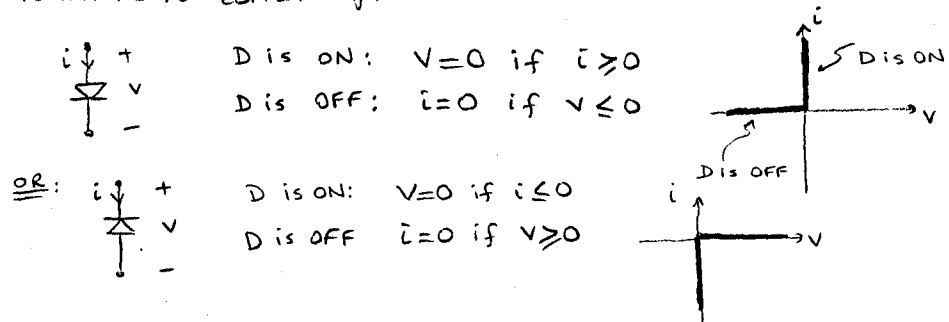 i + D is ON: V=0 if i≥0
v D is OFF: i=0 if v≤0
-
i
D is ON
v
D is OFF
OR: i + D is ON: V=0 if i≤0
v D is OFF i=0 if v≥0
-
i
v